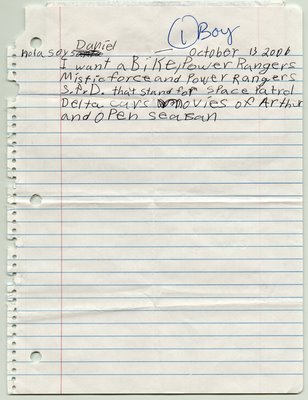 ① Boy
Daniel
hola soy October 13 2006
I want a Bike, Power Rangers
Misticforce and Power Rangers
S.P.D. that stand for Space Patrol
Delta cars movies of Arthur
and open seasan